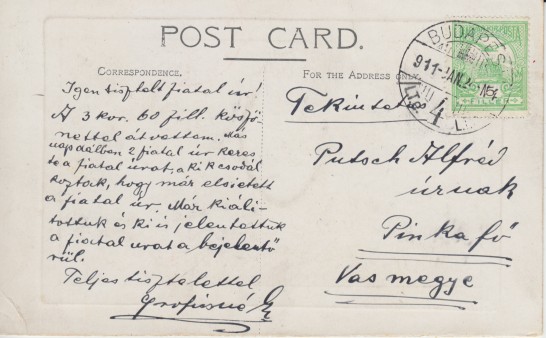 POST CARD.
CORRESPONDENCE.
FOR THE ADDRESS ONLY.
BUDAPEST
911 JAN.
4
Igen tisztelt fiatal úr!
A 3 kor. 60 fill. köszö-
nettel átvettem. Más
nap délben 2 fiatal úr keres
te a fiatal urat, a kik csodál
koztak, hogy már elsietett
a fiatal úr. Már kiáli-
tottuk és ki is jelentettük
a fiatal urat a bejelentő
ről.
Teljes tisztelettel
Tekintetes
Putsch Alfréd
úrnak
Pinkafő
Vas megye